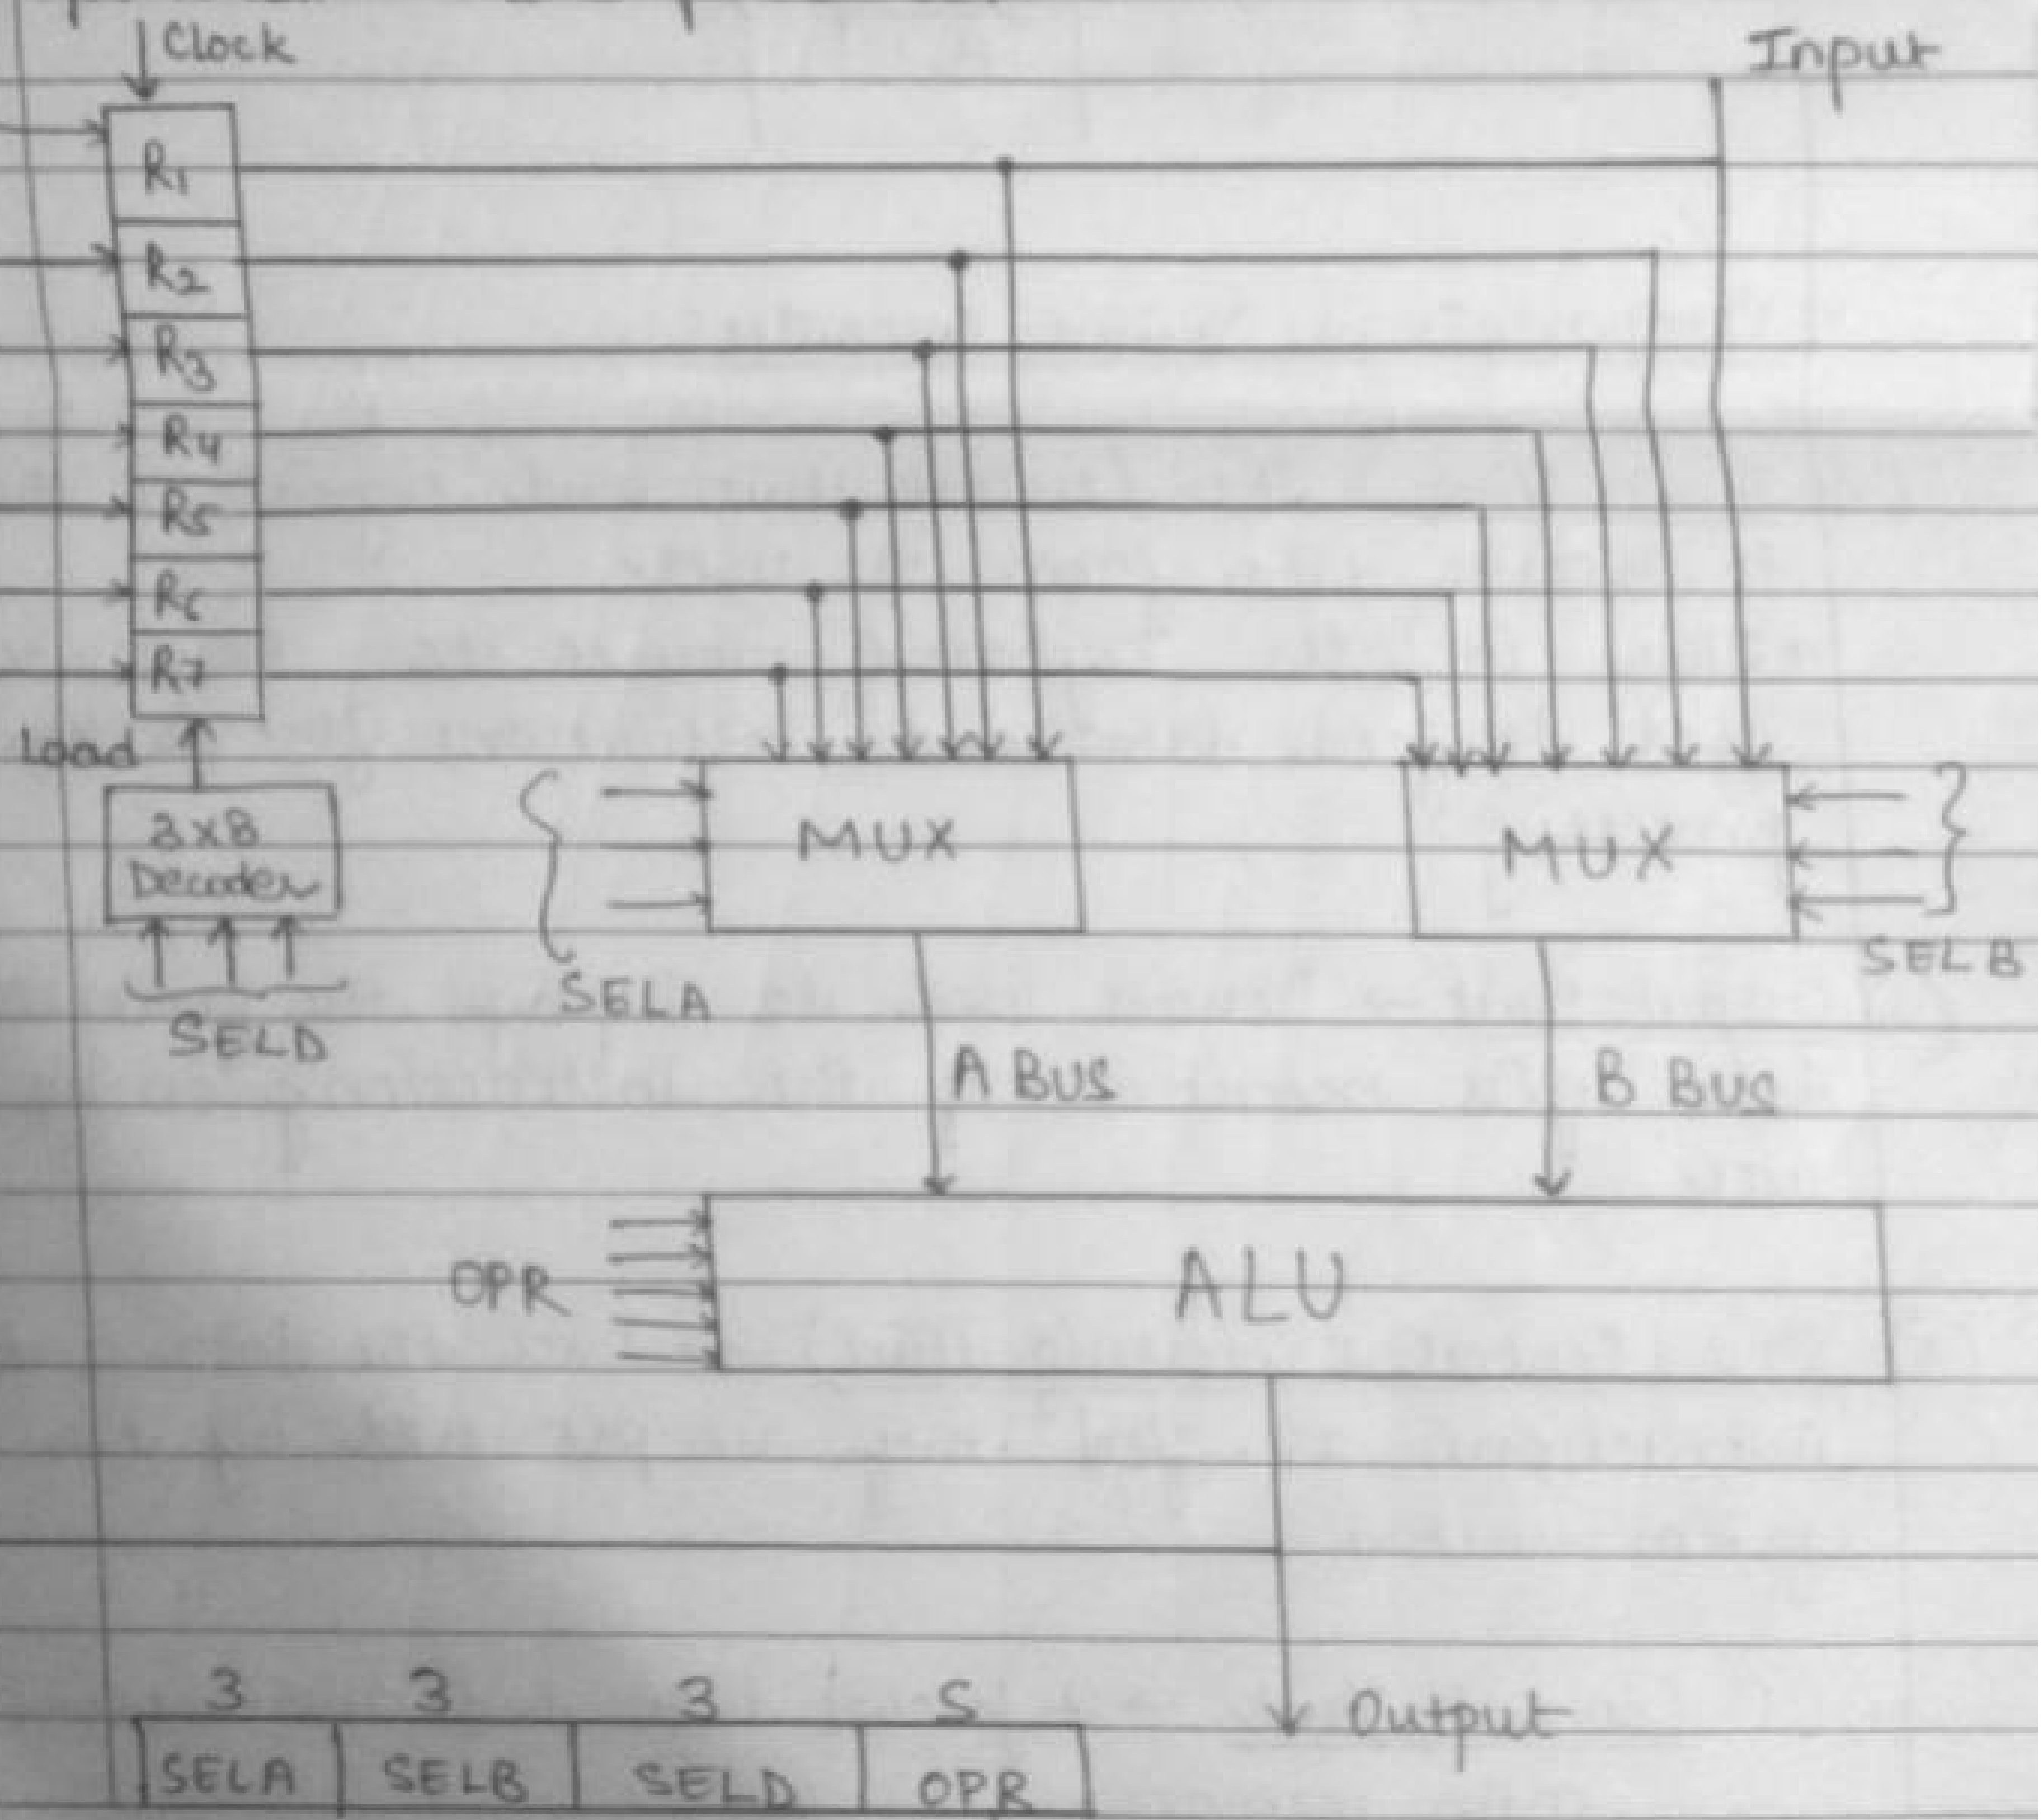 Clock
Input
R1
R2
R3
R4
R5
R6
R7
Load
3x8
Decoder
MUX
MUX
SELA
SELB
SELD
A BUS
B BUS
OPR
ALU
3 3 3 5
Output
SELA SELB SELD OPR